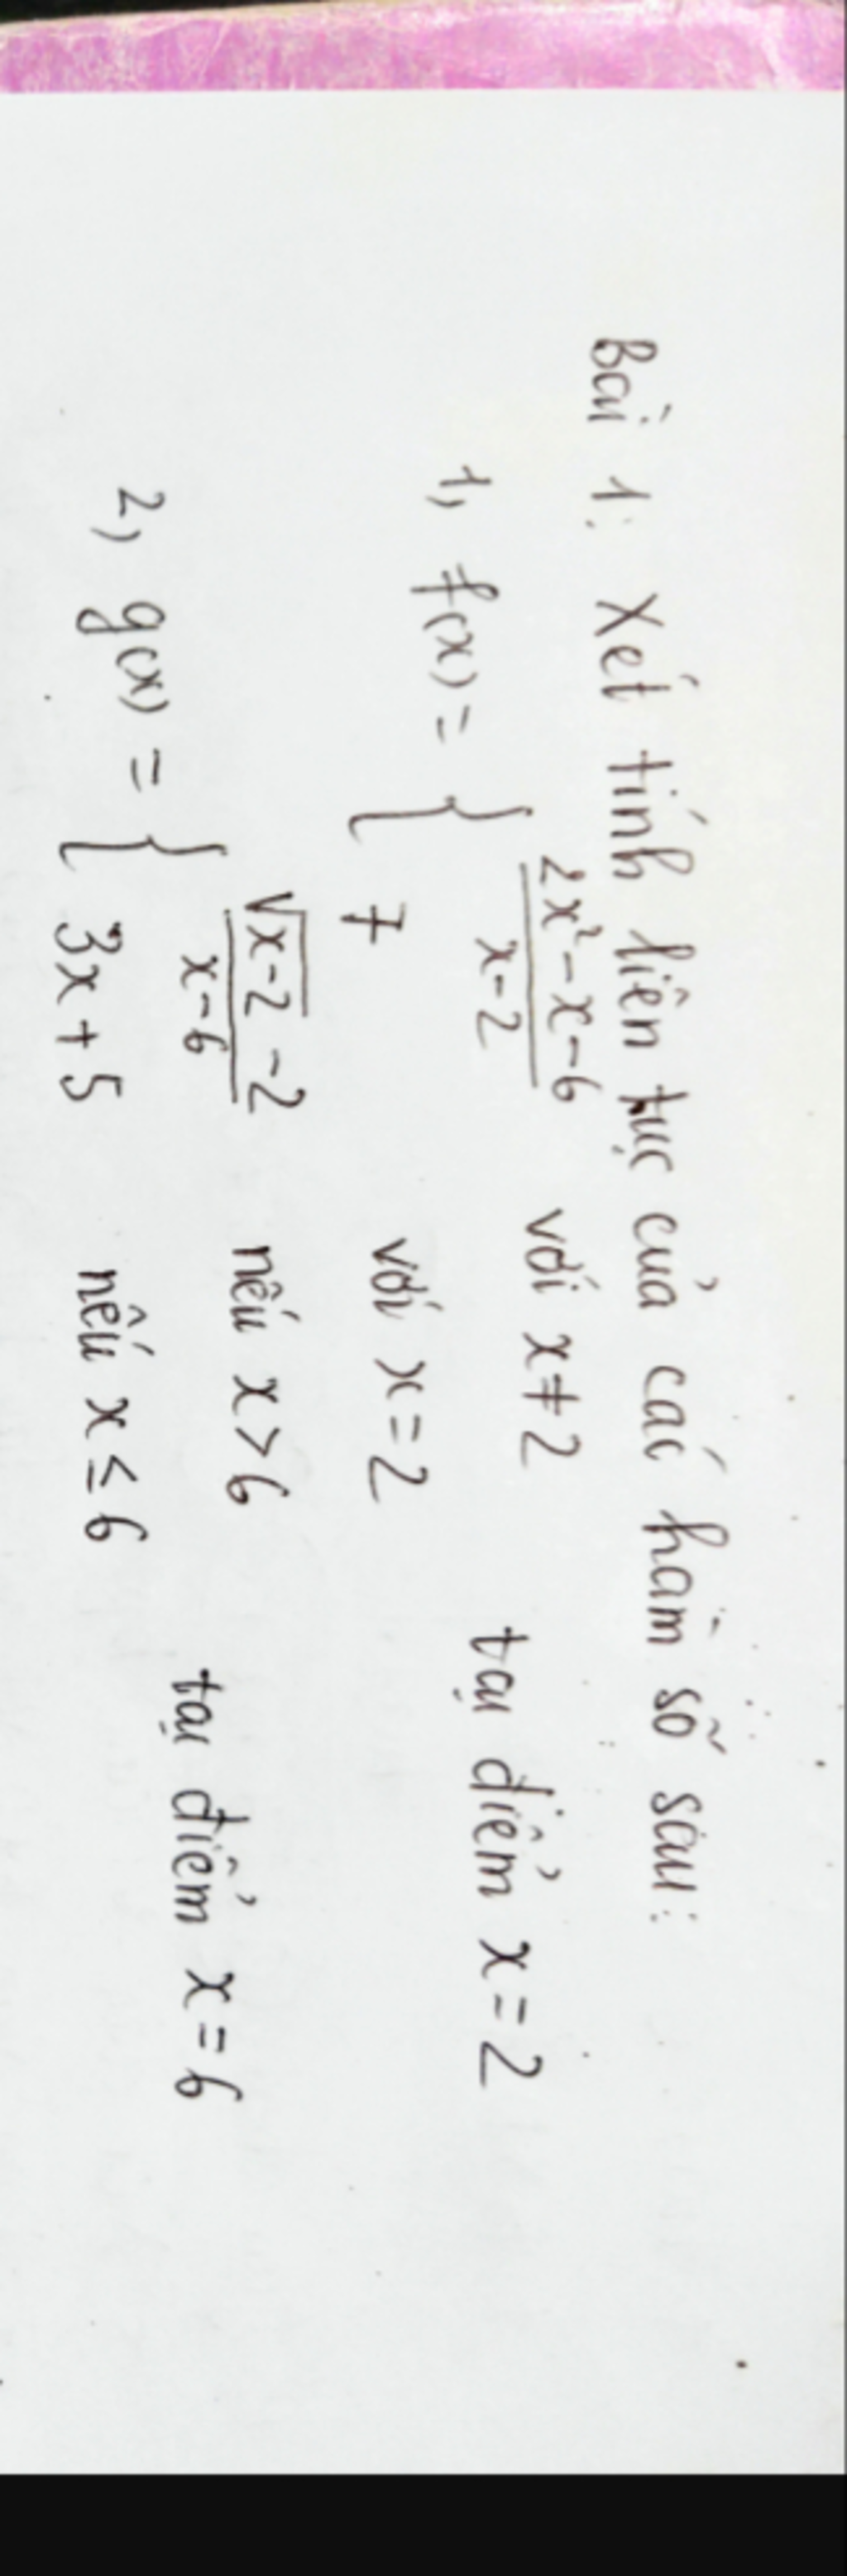 Bài 1: Xét tính liên tục của các hàm số sau:
1, f(x) = { (2x² - x - 6)/(x - 2) với x ≠ 2
7 với x = 2 tại điểm x = 2
2, g(x) = { (√(x-2) - 2)/(x - 6) nếu x > 6
3x + 5 nếu x ≤ 6 tại điểm x = 6